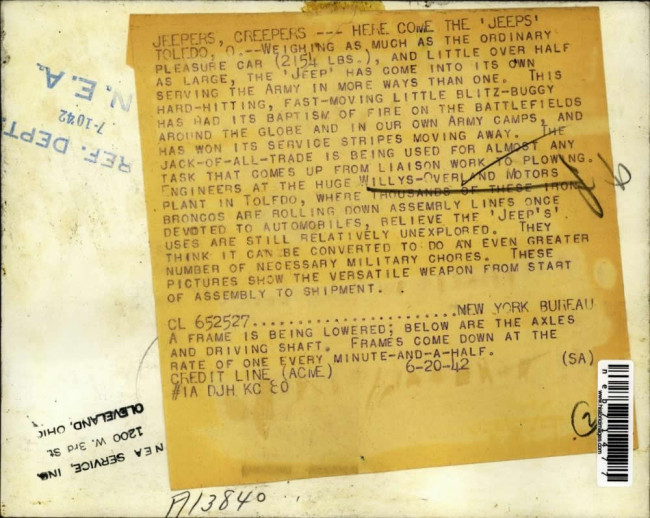 JEEPERS, CREEPERS --- HERE COME THE 'JEEPS'
TOLEDO, O.--WEIGHING AS MUCH AS THE ORDINARY
PLEASURE CAR (2154 LBS.), AND LITTLE OVER HALF
AS LARGE, THE 'JEEP' HAS COME INTO ITS OWN
SERVING THE ARMY IN MORE WAYS THAN ONE. THIS
HARD-HITTING, FAST-MOVING LITTLE BLITZ-BUGGY
HAS HAD ITS BAPTISM OF FIRE ON THE BATTLEFIELDS
AROUND THE GLOBE AND IN OUR OWN ARMY CAMPS, AND
HAS WON ITS SERVICE STRIPES MOVING AWAY. THE
JACK-OF-ALL-TRADE IS BEING USED FOR ALMOST ANY
TASK THAT COMES UP FROM LIAISON WORK TO PLOWING.
ENGINEERS AT THE HUGE WILLYS-OVERLAND MOTORS
PLANT IN TOLEDO, WHERE THOUSANDS OF THESE IRON
BRONCOS ARE ROLLING DOWN ASSEMBLY LINES ONCE
DEVOTED TO AUTOMOBILES, RELIEVE THE 'JEEP'S'
USES ARE STILL RELATIVELY UNEXPLORED. THEY
THINK IT CAN BE CONVERTED TO DO AN EVEN GREATER
NUMBER OF NECESSARY MILITARY CHORES. THESE
PICTURES SHOW THE VERSATILE WEAPON FROM START
OF ASSEMBLY TO SHIPMENT.
CL 652527........................NEW YORK BUREAU
A FRAME IS BEING LOWERED; BELOW ARE THE AXLES
AND DRIVING SHAFT. FRAMES COME DOWN AT THE
RATE OF ONE EVERY MINUTE-AND-A-HALF.
CREDIT LINE (ACME) 6-20-42 (SA)
#1A DJH KC EO
N.E.A.
7-10-42
REF. DEPT.
N E A SERVICE, INC.
1200 W. 3rd St.
CLEVELAND, OHIO
A13840
2
neb14777